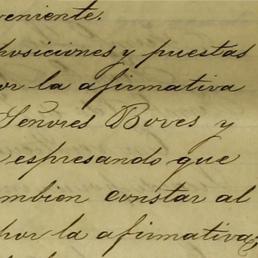 veniente.
posiciones y puestas
or la afirmativa
Señores Boves y
espresando que
mbien constar al
por la afirmativa